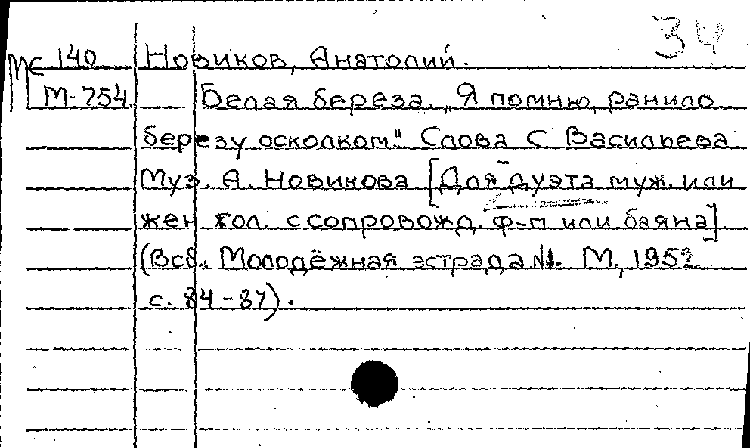 34
Мс 140 Новиков, Анатолий.
М-754 Белая береза. „Я помню, ранило
березу осколком." Слова С Васильева
Муз. А. Новикова [Для дуэта муж. или
жен гол. с сопровожд. ф-п или баяна]
(В сб. Молодёжная эстрада №1. М., 1952
с. 84-87).